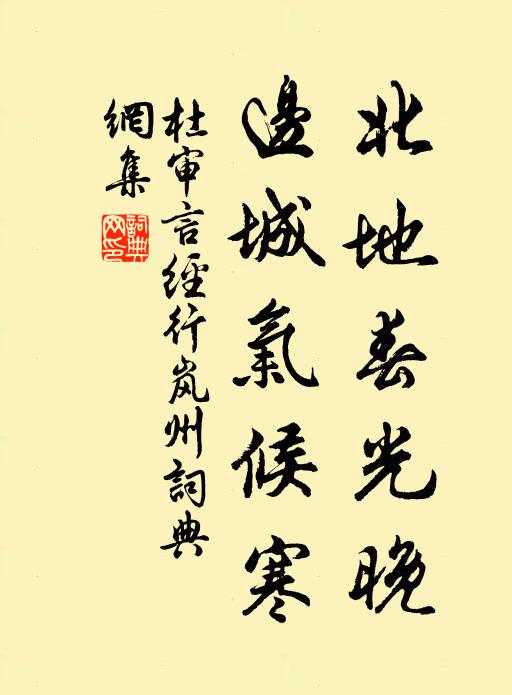 北地春光晚
邊城氣候寒
杜审言經行岚州詞典
網集
詞典網印